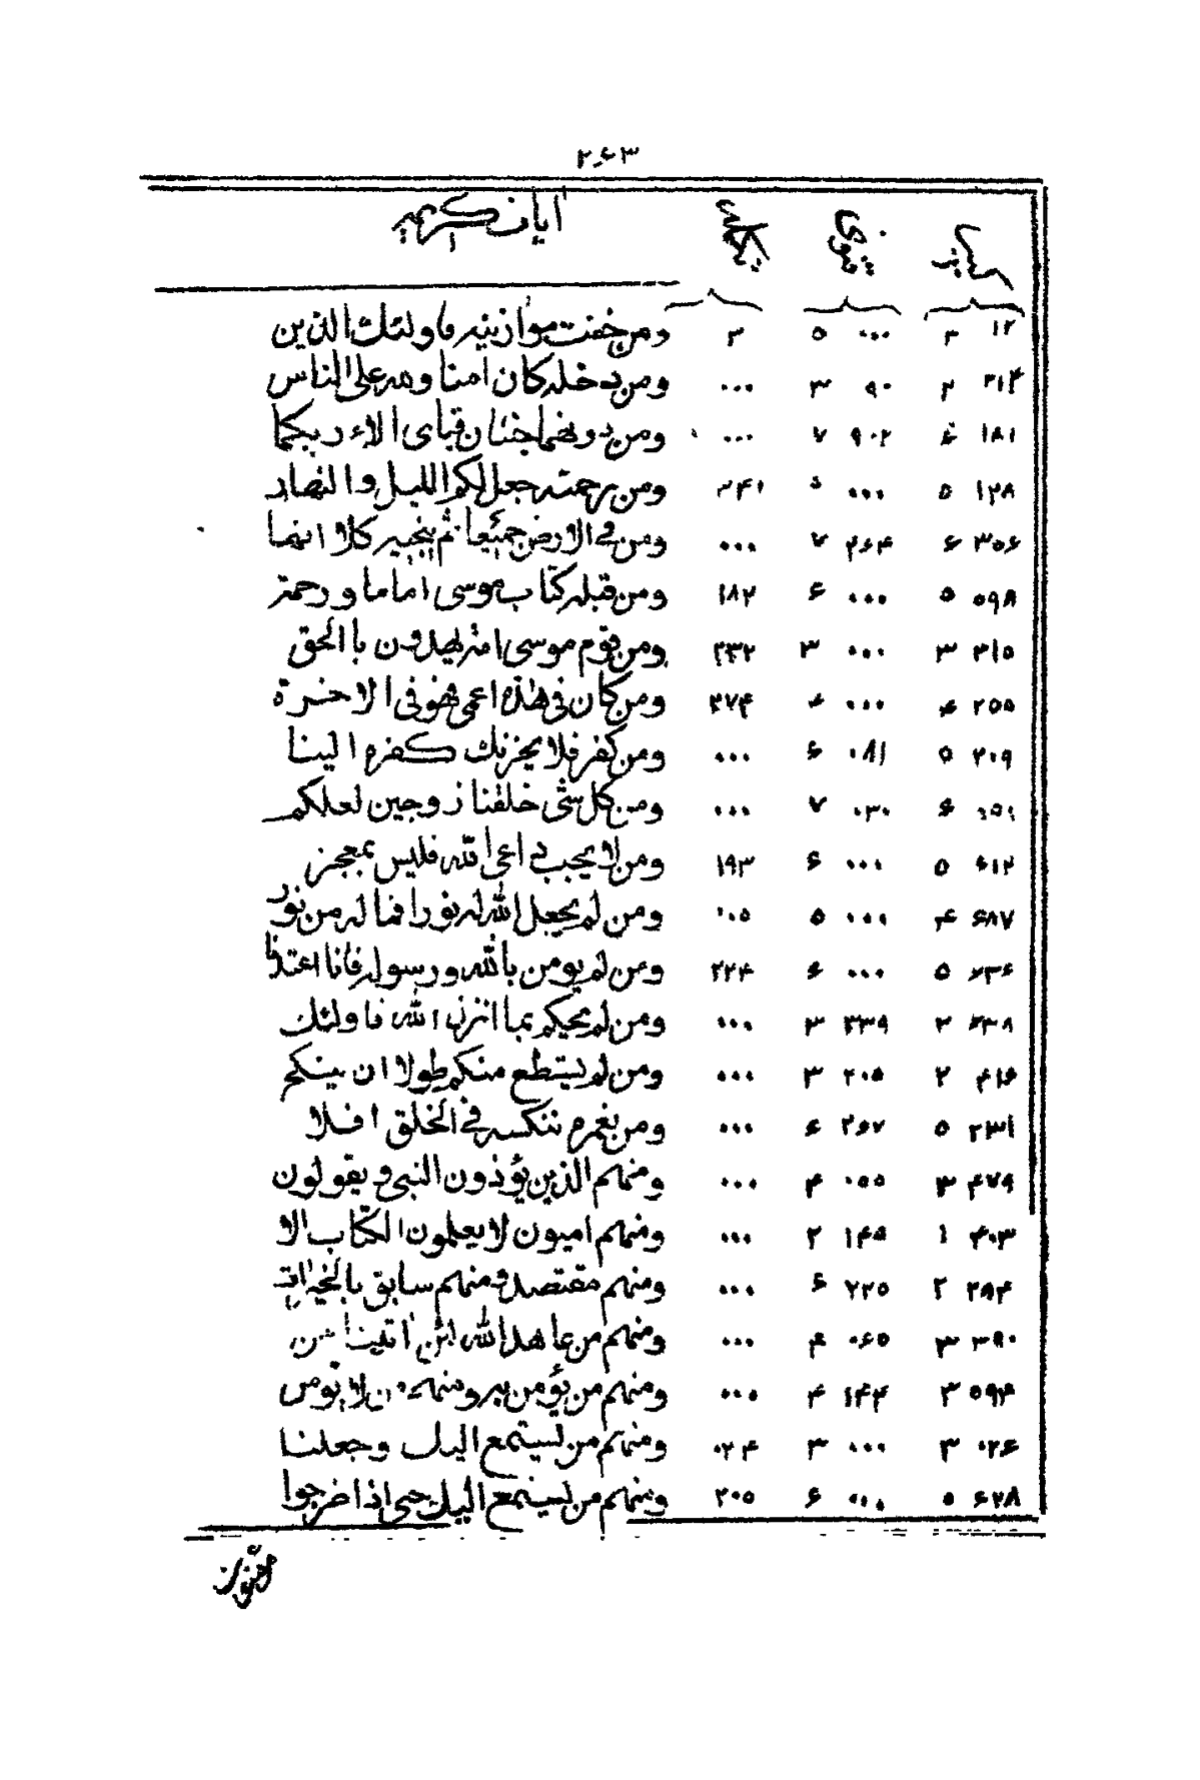 ۲۶۳
ایات کریمه
۱۲ ۳ ... ۵ ۲ ومن خفت موازینه فاولئك الذین
۳۱۴ ۲ ۹۰ ۳ ... ومن دخله كان امنا ومه علی الناس
۱۸۱ ۶ ۹۰۲ ۷ ... ومن دونهما جنتان فبای الاء ربكما
۱۲۸ ۵ ... ۲۴۱ ومن رحمته جعل لكم اللیل والنهار
۳۵۶ ۶ ۲۶۴ ۷ ... ومن فی الارض جمیعا ثم ینجیه كلا انها
۵۹۸ ۵ ... ۶ ۱۸۲ ومن قبله كتاب موسی اماما ورحمة
۲۱۵ ۳ ... ۳ ۲۳۲ ومن قوم موسی امة یهدون باالحق
۲۵۵ ۴ ... ۲۷۴ ومن كان فی هذه اعمی فهو فی الاخرة
۲۰۹ ۵ ۰۸۱ ۶ ... ومن كفر فلا یحزنك كفره الینا
۰۵۱ ۶ ۰۳۰ ۷ ... ومن كل شی خلقنا زوجین لعلكم
۶۱۲ ۵ ... ۶ ۱۹۳ ومن لا یجب داعی الله فلیس بمعجز
۶۸۷ ۴ ... ۵ ۰۵ ومن لم یجعل الله له نورا فما له من نور
۷۳۶ ۵ ... ۶ ۲۲۴ ومن لم یومن بالله ورسوله فانا اعتدنا
۷۳۸ ۲ ۳۳۹ ۳ ... ومن لم یحكم بما انزل الله فاولئك
۴۱۶ ۲ ۲۰۵ ۳ ... ومن لم یستطع منكم طولا ان ینكح
۲۳۱ ۵ ۲۶۷ ۶ ... ومن نعمره ننكسه فی الخلق افلا
۴۷۹ ۳ ۰۵۵ ۴ ... ومنهم الذین یؤذون النبی ویقولون
۳۰۳ ۱ ۱۴۵ ۲ ... ومنهم امیون لا یعلمون الكتاب الا
۲۹۴ ۲ ۲۲۵ ۶ ... ومنهم مقتصد ومنهم سابق بالخیرات
۳۹۰ ۳ ۰۶۵ ۴ ... ومنهم من عاهد الله لئن اتینا من
۵۹۴ ۳ ۱۴۴ ۴ ... ومنهم من یؤمن به ومنهم من لا یؤمن
۰۲۶ ۳ ... ۳ ۰۲۴ ومنهم من یستمع الیك وجعلنا
۶۲۸ ۵ ... ۶ ۲۰۵ ومنهم من یستمع الیك حتی اذا خرجوا